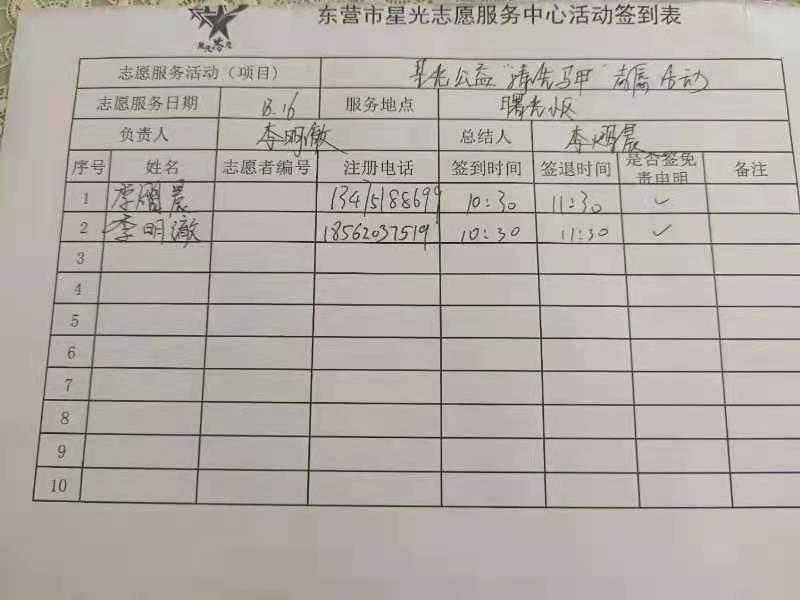 东营市星光志愿服务中心活动签到表
志愿服务活动（项目） 星光公益 活动
志愿服务日期 8.16 服务地点 曙光小区
负责人 李明澈 总结人 李熠晨
序号 姓名 志愿者编号 注册电话 签到时间 签退时间 是否签免责申明 备注
1 李熠晨 13475188699 10:30 11:30 ✓
2 李明澈 18562037519 10:30 11:30 ✓
3
4
5
6
7
8
9
10